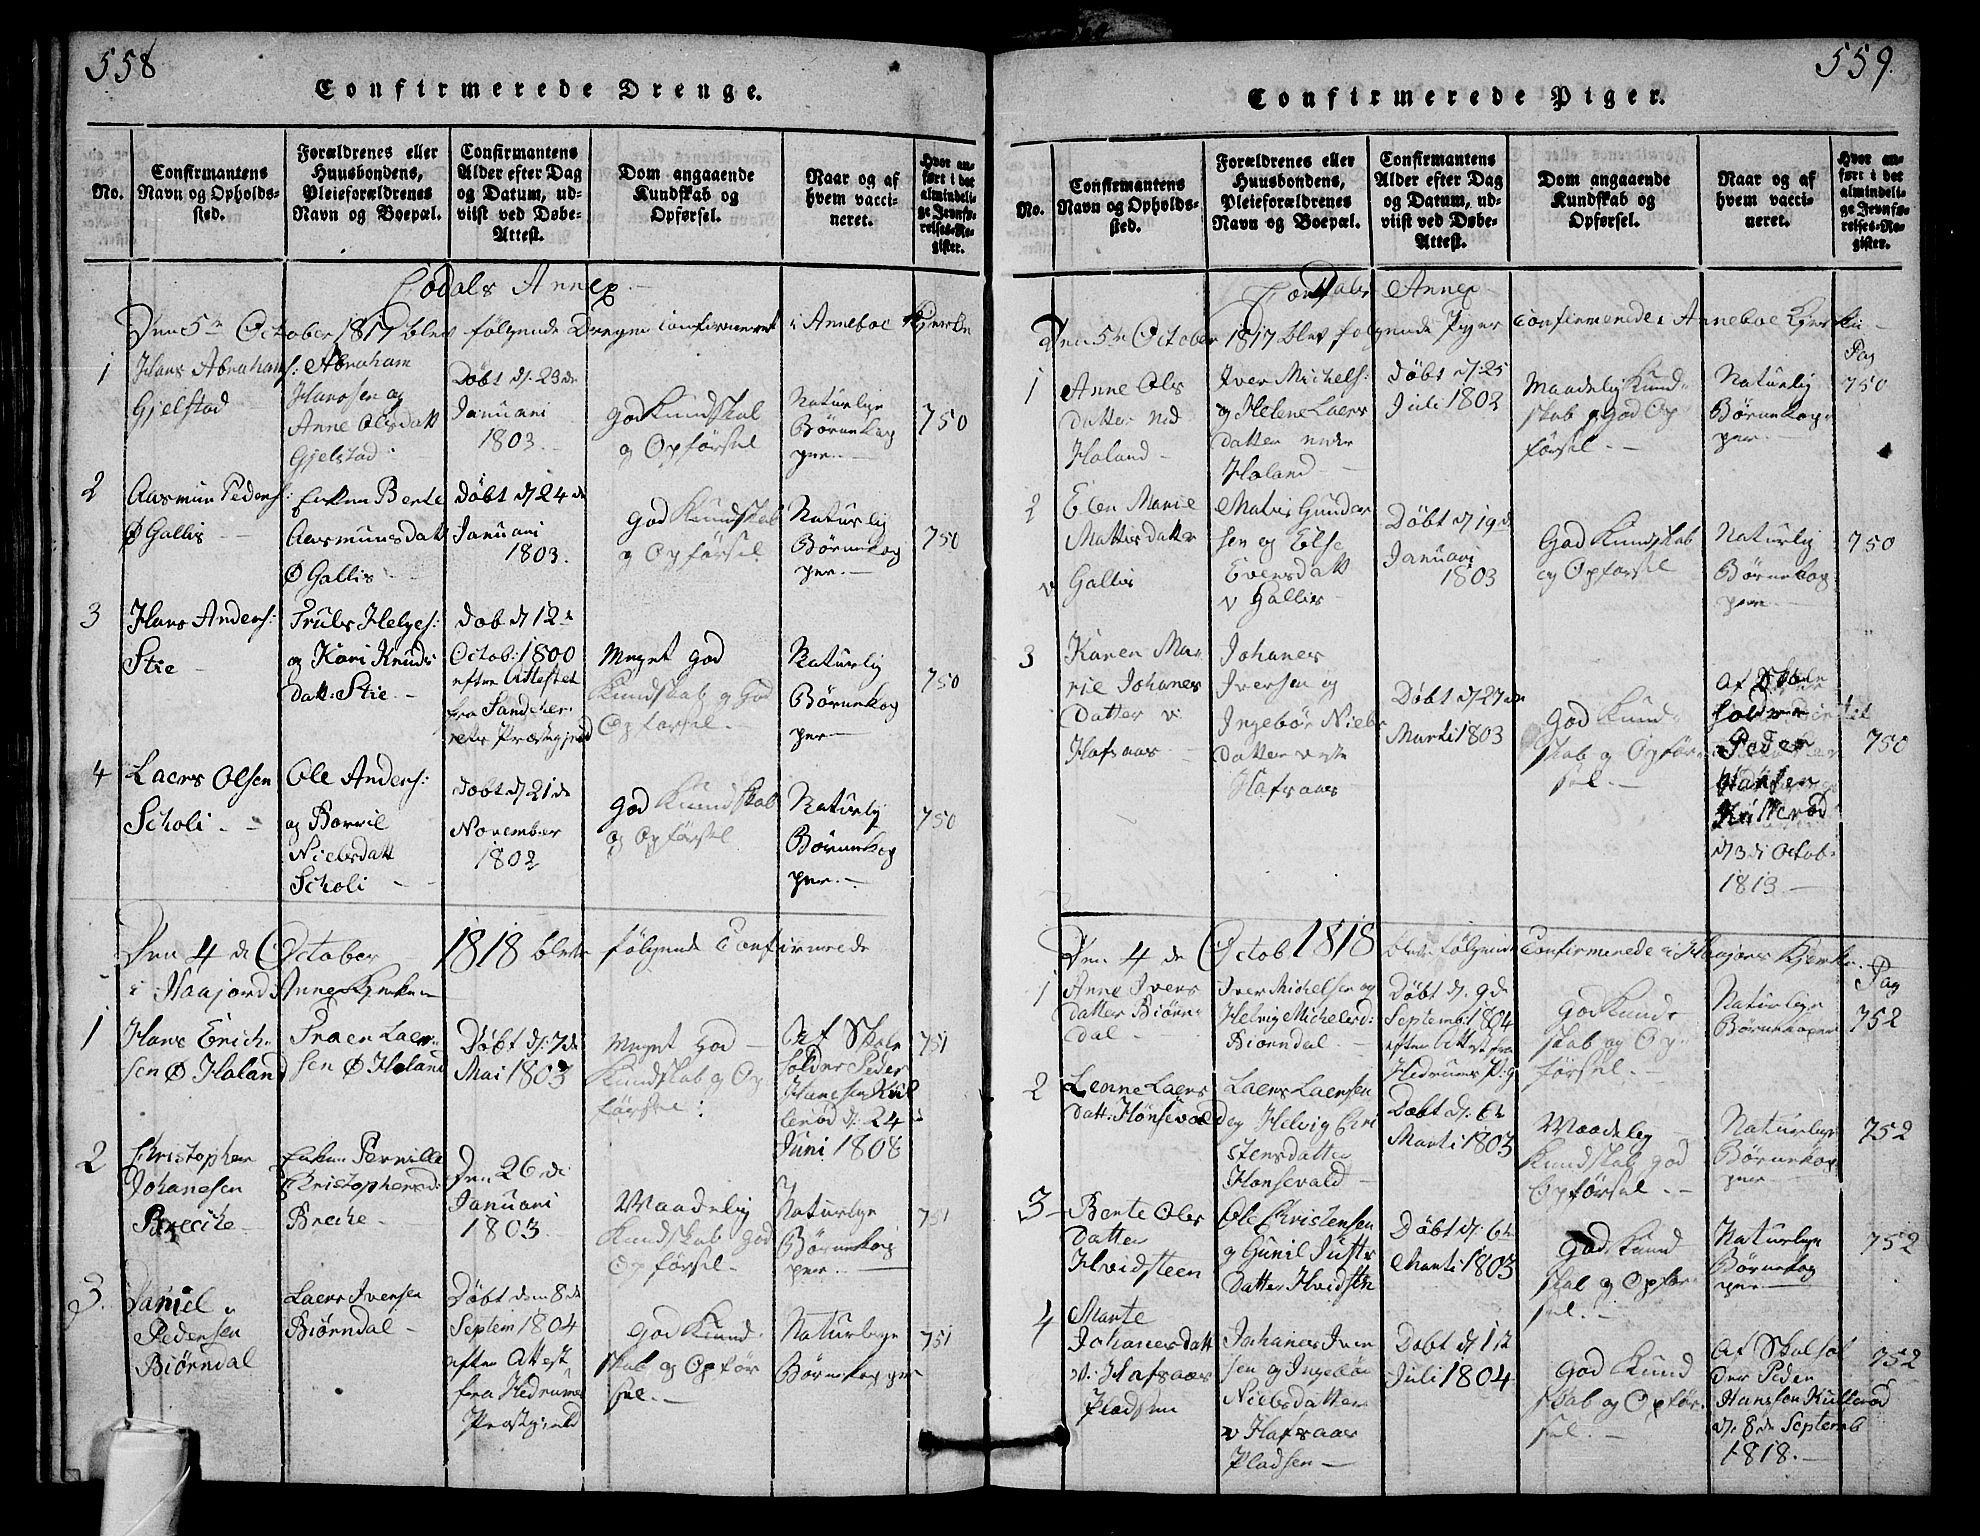 558
Confirmerede Drenge.
No.
Confirmantens
Navn og Opholds-
sted.
Forældrenes eller
Huusbondens,
Pleieforældrenes
Navn og Boepæl.
Confirmantens
Alder efter Dag
og Datum, ud-
viist ved Døbe-
Attest.
Dom angaaende
Kundskab og
Opførsel.
Naar og af
hvem vacci-
neret.
Hvor an-
ført i det
almindeli-
ge Jevnfø-
relses-Re-
gister.
Annex
Den 5te October 1817 blev følgende Drenge confirmeret i Anneboe Kjerke
1
Hans Abrahams:
Gjelstad
Abraham
Hansen og
Anne Olsdatt
Gjelstad
Døbt d: 23de
Januari
1803.
god Kundskab
og Opførsel
Naturlige
Børnekop
per.
750
2
Aasmun Peders:
Ø Gallis
Enken Berte
Aasmunsdatt
Ø Gallis
Døbt d. 24de
Januari
1803.
god Kundskab
og Opførsel
Naturlig
Børnekop
per.
750
3
Hans Anders:
Stie
Truls Helges:
og Kari Knuds
datt: Stie.
Døb d. 12te
Octob: 1800
efter Attestet
fra Sandeher
reds Præstegjeld
Meget god
Kundskab og God
Opførsel.
Naturlig
Børnekop
per
750
4
Laers Olsen
Scholi
Ole Anders:
og Borvil
Nielsdatt
Scholi
døbt d. 21de
November
1802
god Kundskab
og Opførsel
Naturlig
Børnekop
per.
750
Den 4de October 1818 bleve følgende Confirmerede
i Haajord Annex Kjerke
1
Hans Erich-
sen Ø Holand
Laer-
sen Ø Holand
Døbt d: 7de
Mai 1803
Meget god
Kundskab og Op
førsel:
Af Skole
holder Peder
Hansen Kul
lerød d: 24
Juni 1808
751
2
Christopher
Johanesen
Breche
Enken Pernille
Christophersd:
Breche
Den 26de
Januari
1803.
Maadelig
Kundskab god
Opførsel.
Naturlige
Børnekop
per.
751
3.
Daniel
Pedersen
Biørndal
Laers Iversen
Biørndal
Døbt dem 8de
Septem 1804
efter Attest
fra Hedrums
Præstgield
god Kund-
skab og Opfør
sel.
Naturlige
Børnekopper
751
559.
Confirmerede Piger.
No.
Confirmantens
Navn og Opholds-
sted.
Forældrenes eller
Huusbondens,
Pleieforældrenes
Navn og Boepæl.
Confirmantens
Alder efter Dag
og Datum, ud-
viist ved Døbe-
Attest.
Dom angaaende
Kundskab og
Opførsel.
Naar og af
hvem vacci-
neret.
Hvor an-
ført i det
almindeli-
ge Jevnfø-
relses-Re-
gister.
Annex
Den 5te October 1817 blev følgende Piger confirmerede i Anneboe Kjerke
Pag
1
Anne Ols
datter ned
Holand
Iver Michels:
og Helene Laers
datter neder
Holand
Døbt d: 25
Juli 1802
Maadelig Kund-
skab og god Op
førsel.
Naturlig
Børnekop-
per.
750
2
Elen Marie
Mattisdatter
v Gallis
Matis Gunder
sen og Else
Evensdatt
v Gallis
Døbt d. 19de
Januari
1803
God Kundskab
og Opførsel
Naturlig
Børnekop
per.
750
3
Karen Ma
rie Johanes
datter v.
Hafsaas
Johanes
Iversen og
Ingebør Niels
datter veste
Hafsaas
Døbt d. 27de
Marti 1803
God Kund-
skab og Opfør-
sel.
Af Skole
holder
Peder
Hansen
Kullerød
d. 3di Octob-
1813
750
Den 4de Octob 1818 bleve følgende Confirmerede i Haajords Kjerke.
Pag
1
Anne Ivers
datter Biørn-
dal
Iver Michelsen og
Helvig Michelsd:
Biørndal
Døbt d. 9de
Septemb: 1804
efter Attest fra
Hedrums P:g
God Kund-
skab og Op-
førsel.
Naturlige
Børnekoper
752
2
Lenne Laers
datt: Hønsevald
Laers Laersen
og Helvig Chri
stensdatter
Honsevald
Døbt d: 6te
Marti 1803
Maadelig
Kundskab god
Opførsel.
Naturlige
Børnekop-
per
752
3
Berte Ols
datter
Hvidsteen
Ole Christensen
og Gunil Justs
datter Hvidsten
Døbt d: 6te
Marti 1803
God Kund
skab og Opfør-
sel.
Naturlige
Børnekop
per
752
4
Marte
Johanesdatt
v. Hafsaas
Pladsen
Johanes Iver
sen og Ingebør
Nielsdatter
v Hafsaas
Pladsen
Døbt d. 1ste
Juli 1804
God Kund
skab og Opfør-
sel.
Af Skolehol
der Peder
Hansson Kullerød
d. 8de Septemb
1818.
752